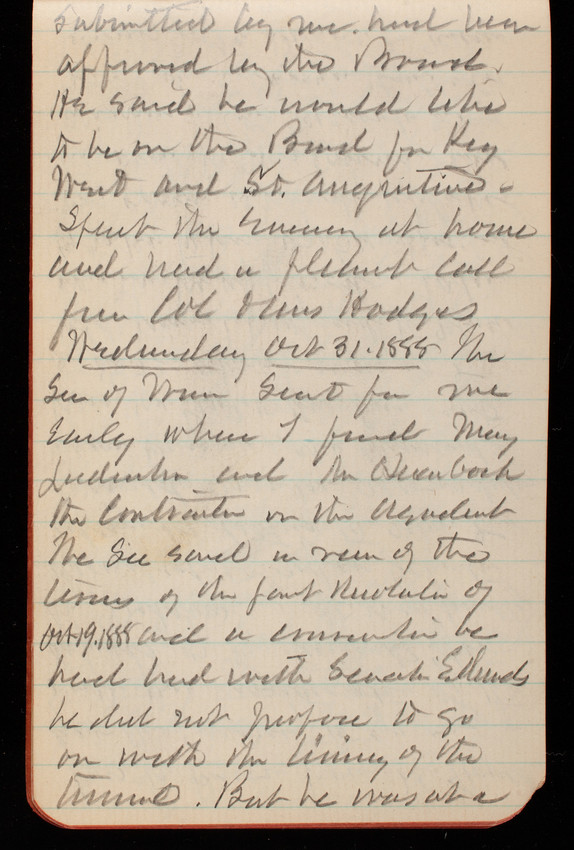 submitted by me had been
approved by the Board.
He said he would like
to be on the Board for Key
West and St. Augustine.
Spent the Evening at home
and had a pleasant call
from Col Hodges
Wednesday Oct 31. 1888 The
Sec of War Sent for me
Early where I found Maj
and Mr
the Contractor on the Aqueduct
The Sec said in view of the
terms of the joint Resolution of
Oct. 19. 1888 and a conversation he
had had with Senator Edmunds
he did not propose to go
on with the lining of the
tunnel. But he was at a